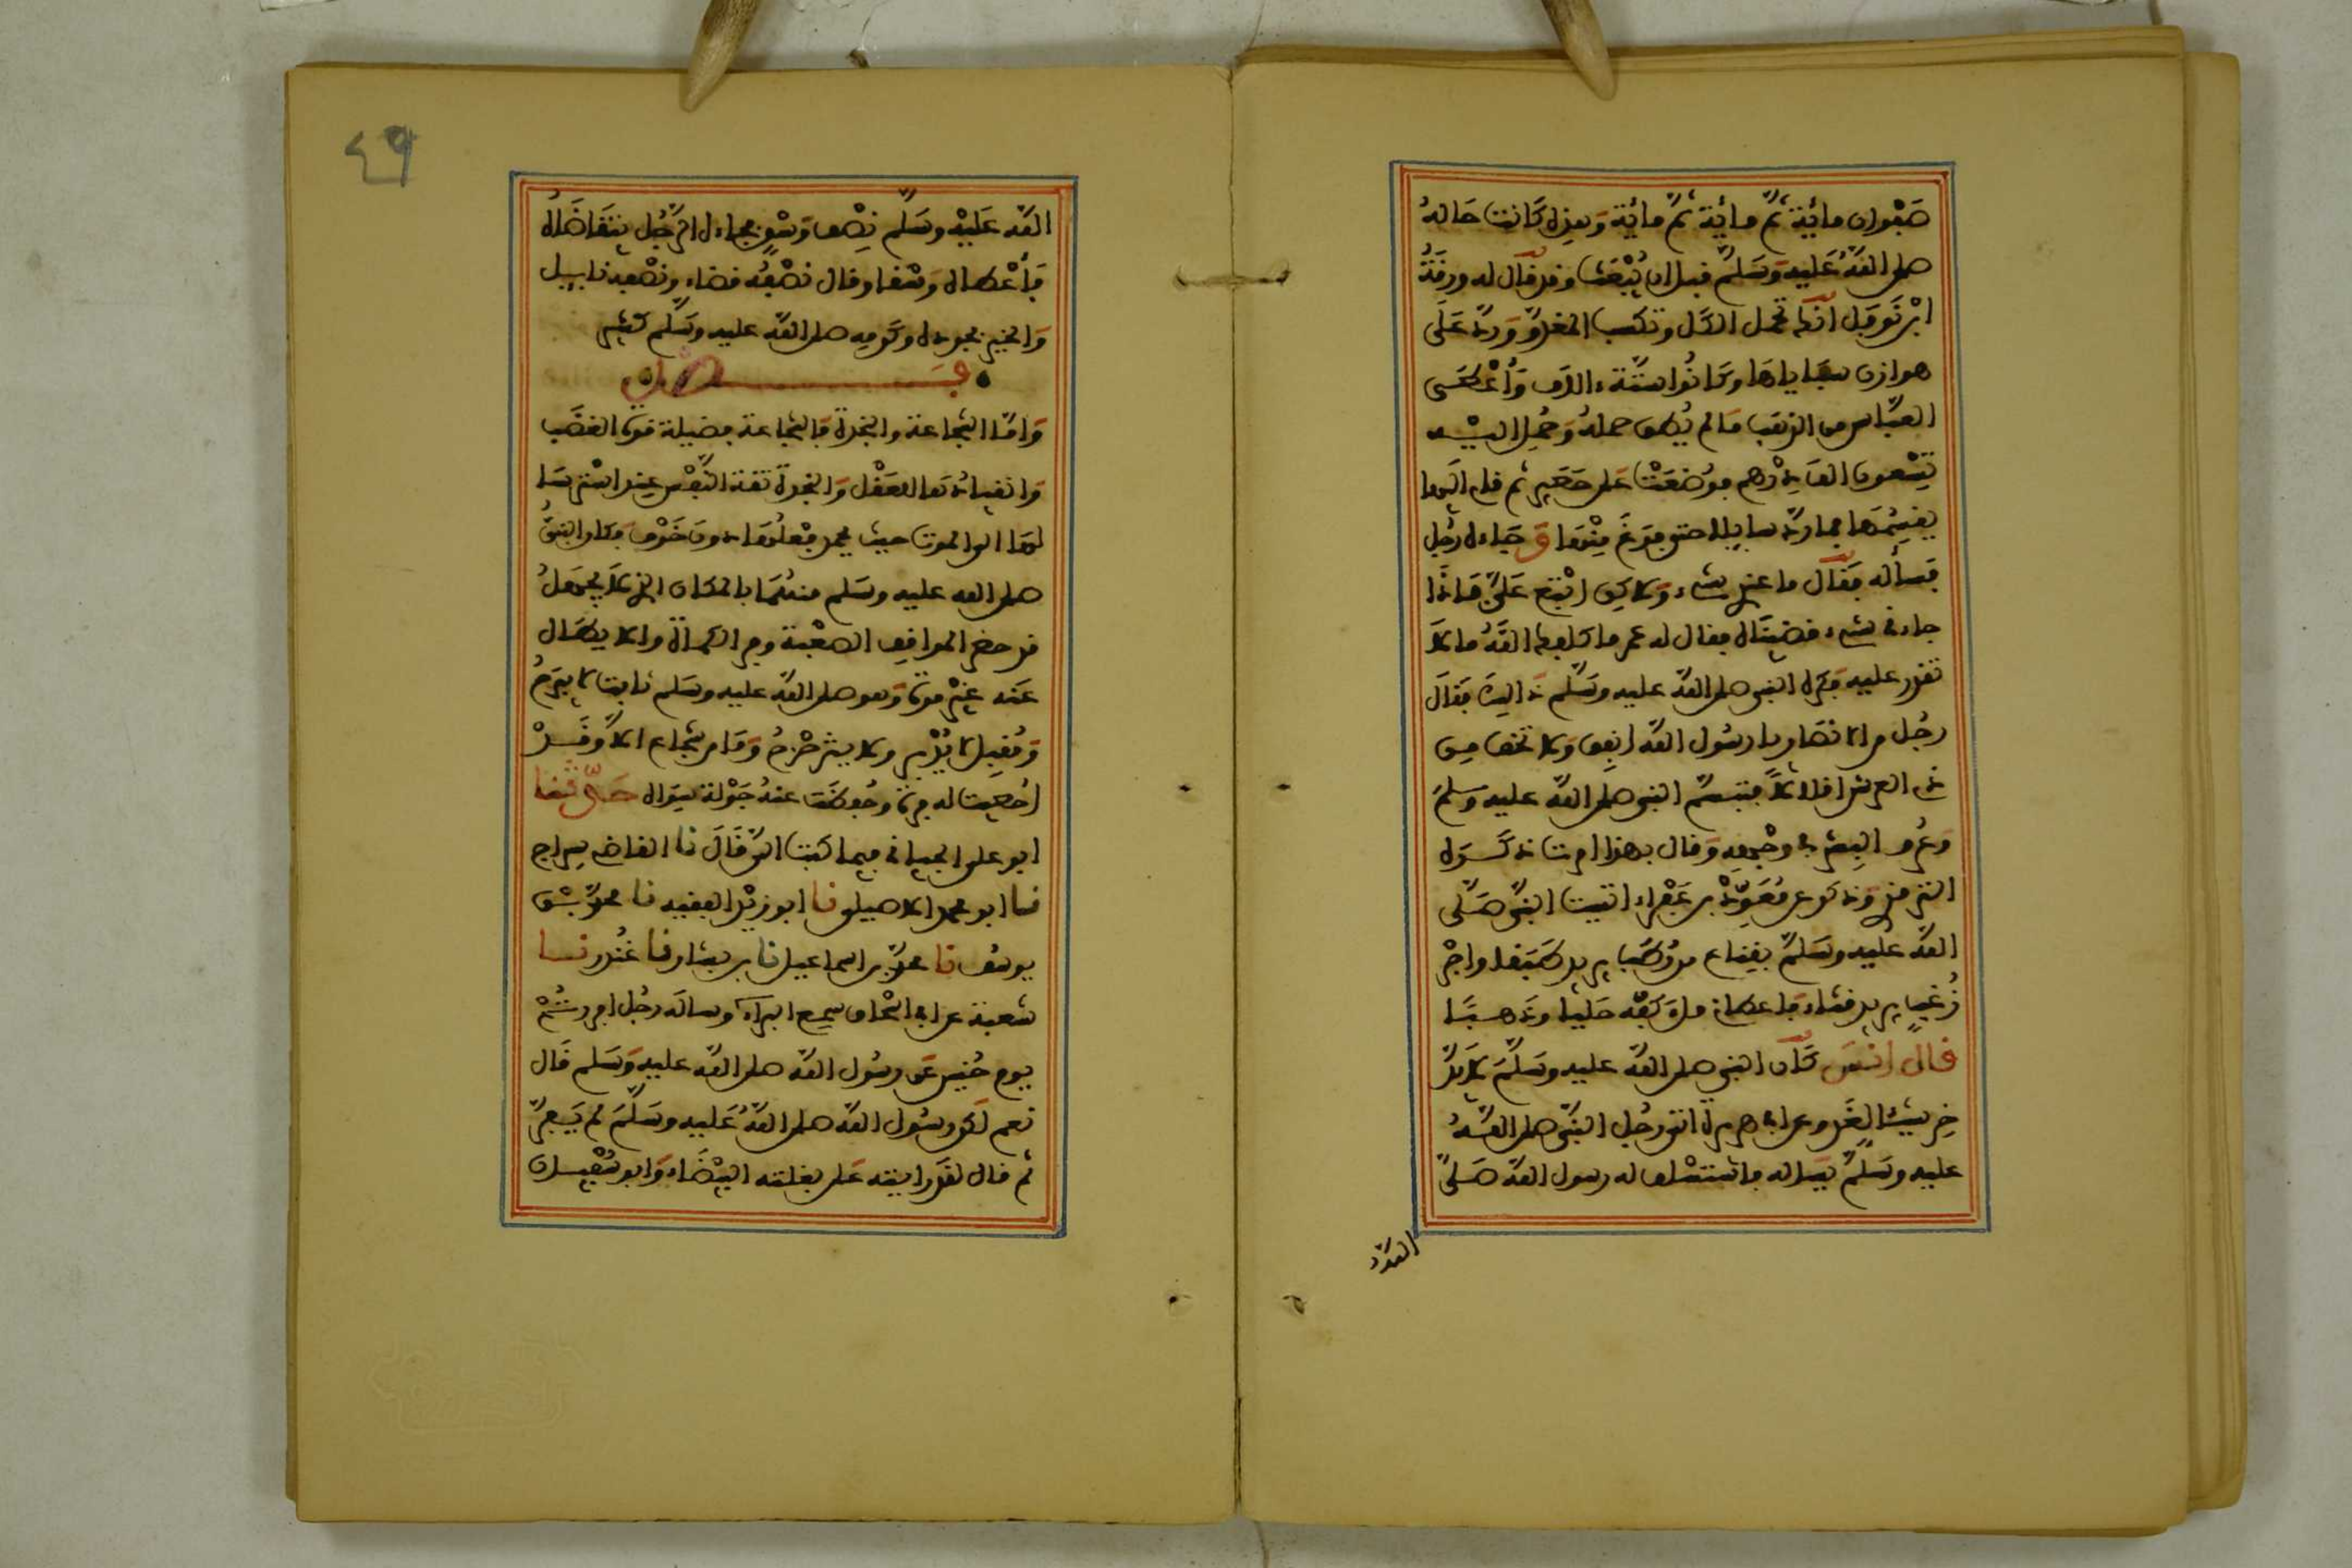 صفوان مائة ثم مائة ثم مائة وهذه كانت حاله
صلى الله عليه وسلم قبل ان يبعث وقد قال له ورقة
ابن نوفل انك تحمل الكل وتكسب المعدوم ورد على
هوازن سباياها وكانوا ستة ءالاف وأعطى
العباس من الذهب ما لم يطق حمله وحمل اليه
تسعون الف درهم فوضعت على حصير ثم قام اليها
يقسمها فما رد سايلا حتى فرغ منها وجاءه رجل
فسأله فقال ما عندي شيء ولاكن ابتع علي فاذا
جاءنا شيء قضيناه فقال له عمر ما كلفك الله ما لا
تقدر عليه فكره النبي صلى الله عليه وسلم ذالك فقال
رجل من الانصار يا رسول الله انفق ولا تخف من
ذي العرش اقلالا فتبسم النبي صلى الله عليه وسلم
وعرف البشر في وجهه وقال بهذا امرت ذكره
الترمذي وذكر عن معوذ بن عفراء اتيت النبي صلى
الله عليه وسلم بقناع من رطب يريد طبقا واجر
زغب يريد قثاء فاعطاني ملء كفه حليا وذهبا
قال انس كان النبي صلى الله عليه وسلم لا يدخر
شيئا لغد وعن ابي هريرة اتى رجل النبي صلى الله
عليه وسلم يساله فاستسلف له رسول الله صلى
الله
٤٩
الله عليه وسلم نصف وسق فجاءه الرجل يتقاضاه
فأعطاه وسقا وقال نصفه قضاء ونصفه نايل
والخبر بجوده وكرمه صلى الله عليه وسلم كثير
فصل
واما الشجاعة والنجدة فالشجاعة فضيلة قوة الغضب
وانقيادها للعقل والنجدة ثقة النفس عند استرسا
لها الى الموت حيث يحمد فعلها دون خوف وكان النبي
صلى الله عليه وسلم منهما بالمكان الذي لا يجهل
قد حضر المواقف الصعبة وفر الكماة والابطال
عنه غير مرة وهو صلى الله عليه وسلم ثابت لا يبرح
ومقبل لا يدبر ولا يتزحزح وما من شجاع الا وقد
احصيت له فرة وحفظت عنه جولة سواه حدثنا
ابو علي الجياني فيما كتب الي قال نا القاضي سراج
نا ابو محمد الاصيلي نا ابو زيد الفقيه نا محمد بن
يوسف نا محمد بن اسماعيل نا بن بشار نا غندر نا
شعبة عن ابي اسحاق سمع البراء وساله رجل افررتم
يوم حنين عن رسول الله صلى الله عليه وسلم قال
نعم لكن رسول الله صلى الله عليه وسلم لم يفر
ثم قال لقد رايته على بغلته البيضاء وابو سفيان